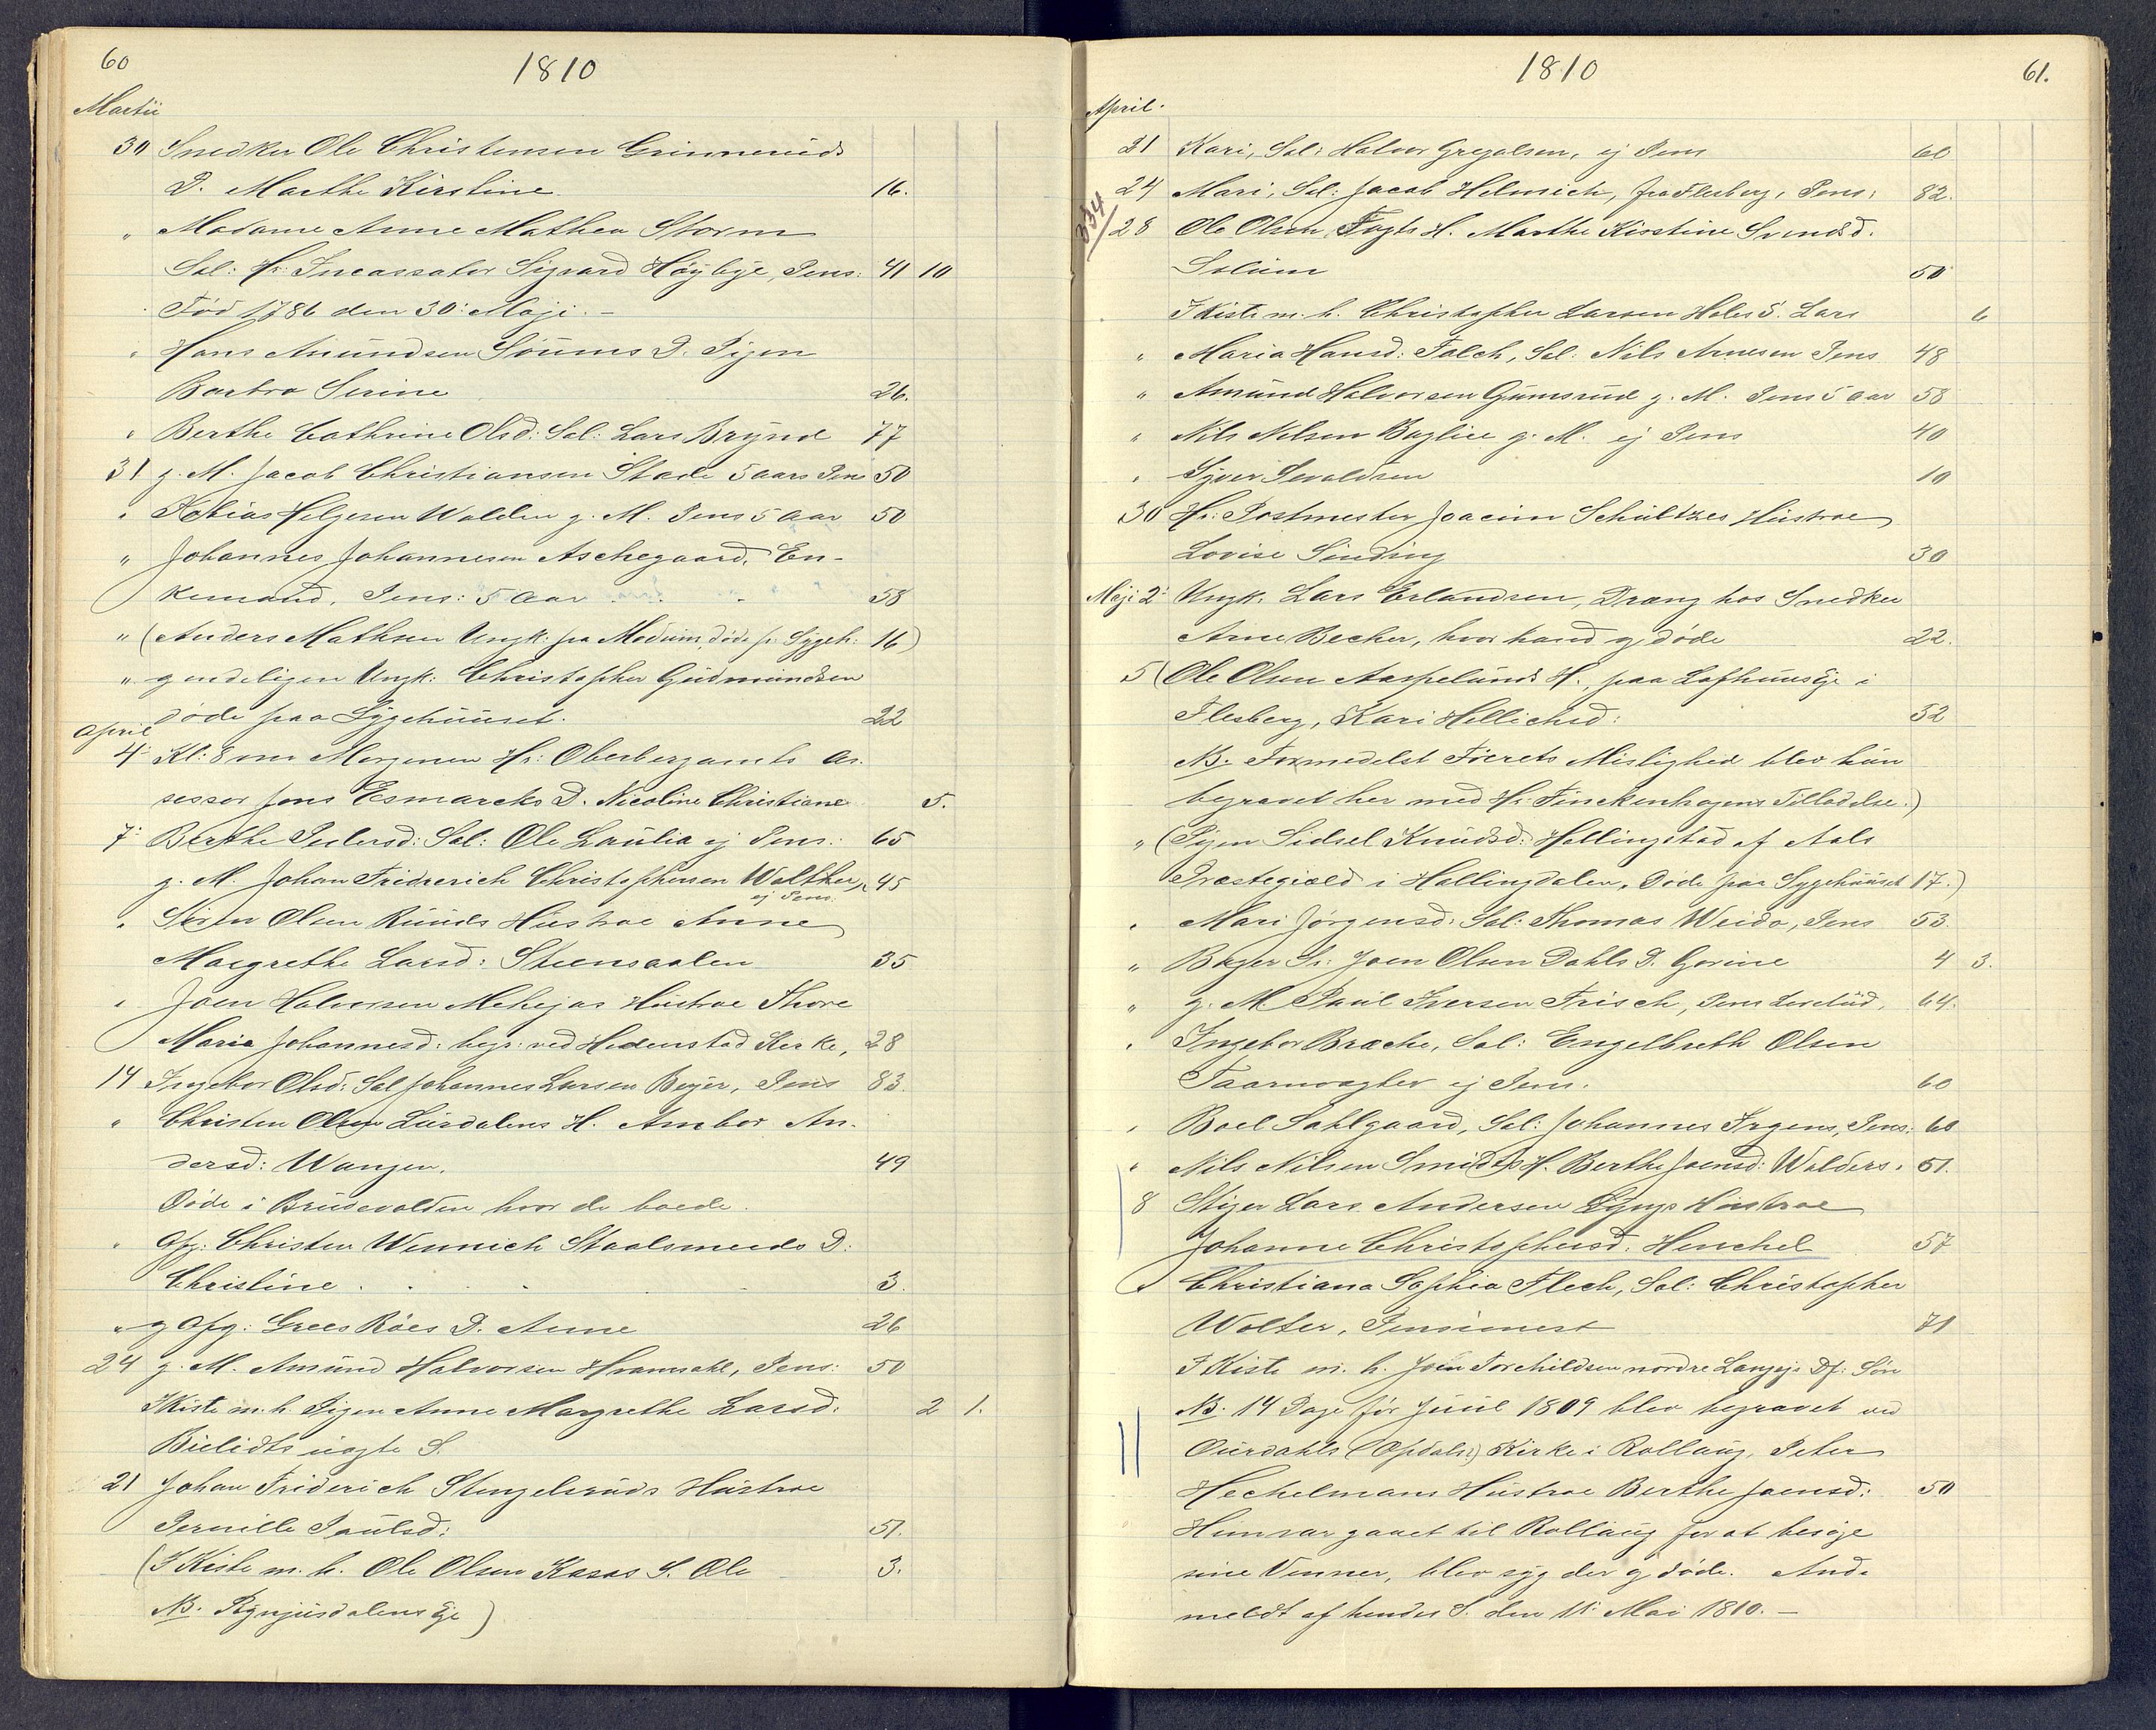 60
1810
Martii
30 Snedker Ole Christensen Grinneruds
D. Marthe Kirstine 16.
" Madame Anne Mathea Storm
Sal: Hr: Incassator Sigvard Høybye, Pens: 41 10
Fød 1786 den 30: Maji. –
" Hans Amundsen Souns D. Pigen
Barbro Serine 26.
" Berthe Cathrine Olsd: Sal: Lars Brynd 77
31 g. M. Jacob Christiansen Stade 5 aars Pens 50
" Tobias Helgesen Walden g. M. Pens 5 aar 50
" Johannes Johannesen Aschegaard, En-
kemand, Pens: 5 Aar 58
" (Anders Mathsen Ungk: fra Modum, døde p. Sygeh: 16)
" gudeligen Ungk: Christopher Gudmundsen
døde paa Sygehuuset. 22
April
4: Kl: 8 om Morgenen Hr: Oberbergamts As-
sessor Jens Esmarcks D. Nicoline Christiane 5.
7: Berthe Pedersd: Sal: Ole Laulia ej Pens: 65
g. M. Johan Fridrerich Christophersen Walther, 45
ej Pens.
" Søren Olsen Ruuds Hustroe Anne
Margrethe Larsd: Steensaalen 35
" Joen Halvorsen Mehejas Hustroe Thore
Maria Johannesd: begr: ved Hedenstad Kirke, 28
14 Ingebor Olsd: Sal Johannes Larsen Beyer, Pens 83.
" Christen Olsen Lurdalens H. Ambor An-
dersd: Wangen. 49
Døde i Brudevolden hvor de boede.
" Opj: Christen Wennich Staalsmeds D:
Christine 3.
" g Opj: Grees Röes D. Anne 26
24 g. M. Amund Halvorsen Hvamsahl, Pens: 50
I Kiste m. h. Pigen Anne Margrethe Larsd: 2 1.
Bielidts uægte S.
21 Johan Friderich Stengelsruds Hustroe
Pernille Paulsd: 51.
(I Kiste m. h. Ole Olsen Kasas S. Ole 3.
NB. Rynjusdalens Eje)
1810
61.
April.
21 Kari, Sal: Halvor Gregalsen, ej Pens 60
24 Mari, Sal: Jacob Helmich, fra Flesberg, Pens: 82.
334
28 Ole Olsen Fogts H. Marthe Kirstine Svendsd.
Solum 50
I Kiste m. h. Christopher Larsen Holes S. Lars 6
" Maria Hansd: Falch, Sal: Nils Arnesen Pens 48
" Amund Halvorsen Gumsrud g. M. Pens 5 aar 58
" Nils Nilsen Baglie g. M. ej Pens 40
" Syver Sevaldsen 10
30 Hr: Postmester Joacim Schultzes Hustroe
Lovise Sinding 30
Maji 2: Ungk. Lars Erlandsen, Dreng hos Snedker
Arne Becker, hvor hand og døde 22.
5 (Ole Olsen Aaspelunds H., paa Lofthuus Eje i
Flesberg, Kari Hellichsd: 32
NB. Formedelst Førets Mislighed blev hun
begravet her med Hr: Finckenhagens Tilladelse.)
" (Pigen Sidsel Knudsd: Hellingstad af Aals
Præstegiæld i Hallingdalen. Døde paa Sygehuuset 17.)
" Mari Jørgensd: Sal: Thomas Weida, Pens 53.
" Bager Sr: Joen Olsen Dahls D. Gorine 4 3.
" g. M. Paul Iversen Frisch, Pens Levetiid. 64.
" Ingebor Brache, Sal: Engelbreth Olsen
Taarnvagter ej Pens. 60
" Boel Sahlgaard, Sal: Johannes Irgens, Pens: 60
" Nils Nilsen Smidts H. Berthe Joensd: Walders. 51.
8 Stiger Lars Andersen Lyngs Hustroe
Johanne Christophersd: Henchel 57
" Christiana Sophia Flech, Sal: Christopher
Wolter, Pensionest 71
I Kiste m. h. Joen Torchildsen nordre Langejs Df: Søn
NB. 14 Dage før Juul 1809 blev begravet ved
Ourdahls (Opdals?) Kirke i Rollaug, Peter
Heckelmans Hustroe Berthe Joensd: 50
Hun var gaaet til Rollaug for at besøge
sine Venner, blev syg der og døde. And-
meldt af hendes S. den 11: Mai 1810. –